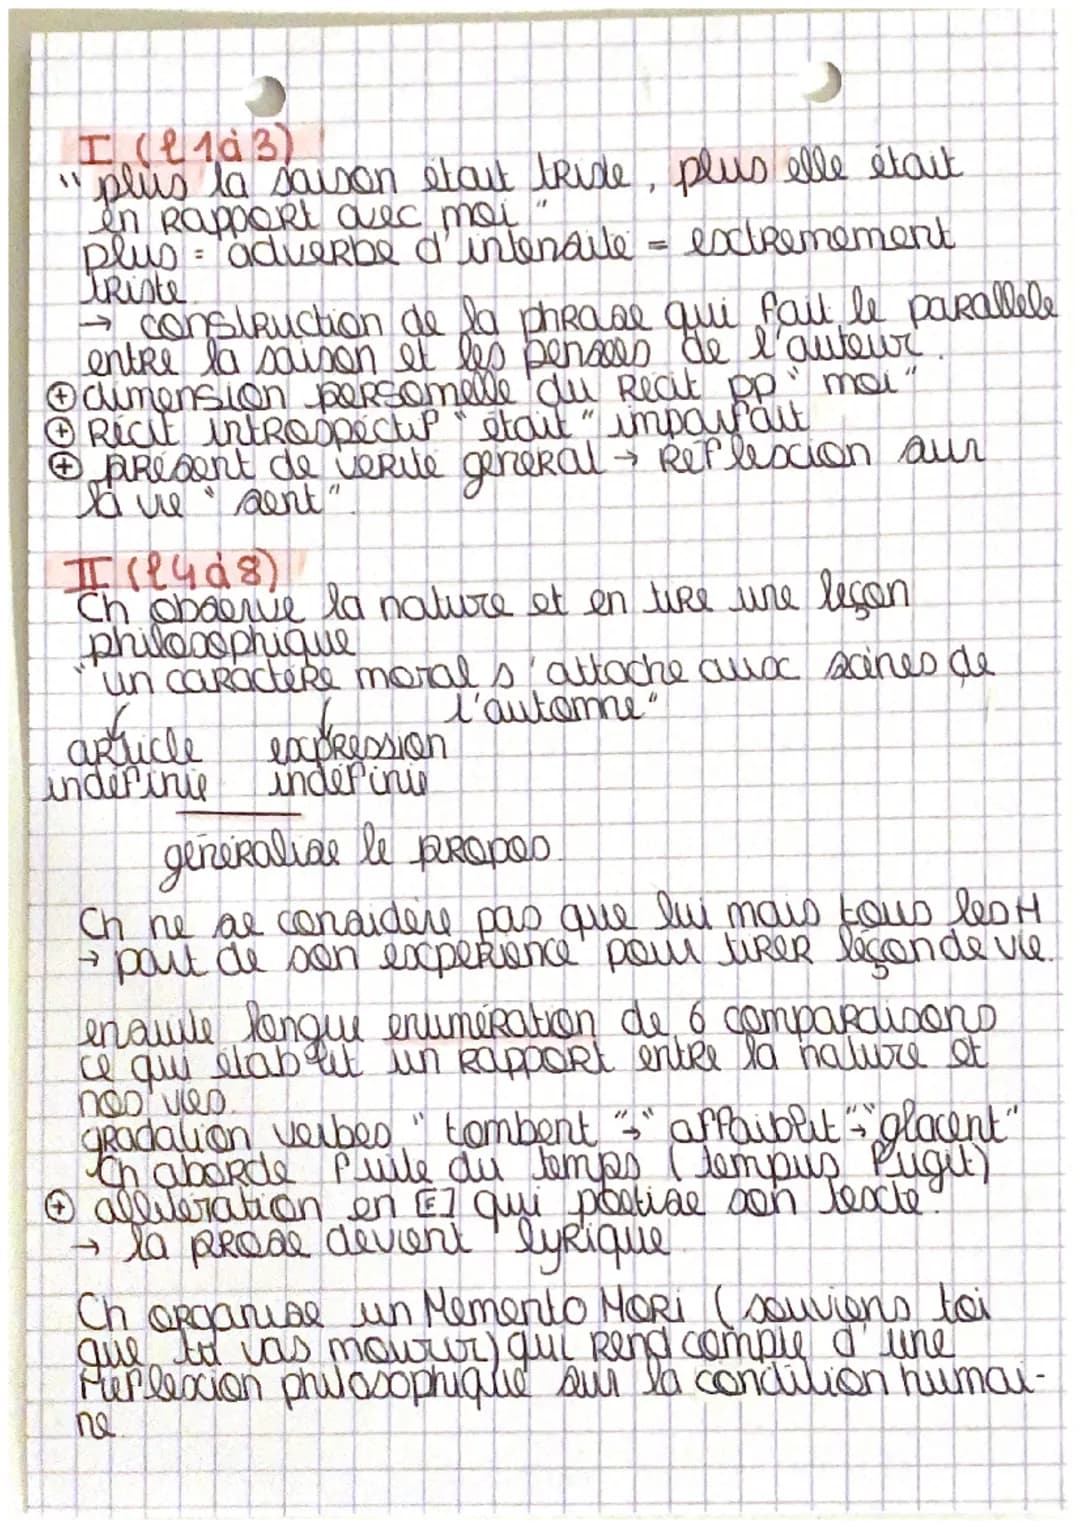 I (l 1 à 3)
" plus la saison était triste, plus elle était
en rapport avec moi "
plus = adverbe d'intensité = extremement
triste
→ construction de la phrase qui fait le parallele
entre la saison et les pensées de l'auteur.
⊕ dimension personnelle du Récit pp "moi"
⊕ Récit introspectif "était" imparfait
⊕ présent de verité général → Réflexion sur
la vie "sent".
II (l 4 à 8)
Ch observe la nature et en tire une leçon
philosophique
"un caractère moral s'attache aux scènes de
l'automne"
article expression
indéfinie indéfinie
généralise le propos.
Ch ne se considère pas que lui mais tous les H
→ part de son expérience pour tirer leçon de vie.
ensuite longue enumération de 6 comparaisons
ce qui établit un rapport entre la nature et
nos vies.
gradation verbes " tombent "→" affaiblit"→"glacent"
Ch aborde fuite du temps (tempus fugit)
⊕ allitération en [E] qui poétise son texte.
→ la prose devient lyrique
Ch organise un Memento Mori (souviens toi
que tu vas mourir) qui rend compte d'une
Réflexion philosophique sur la condition humai-
ne.